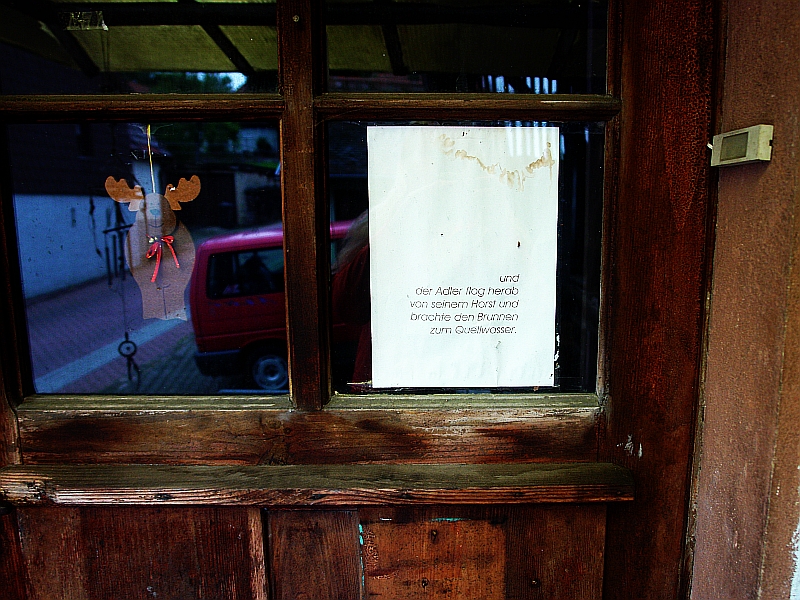 und
der Adler flog herab
von seinem Horst und
brachte den Brunnen
zum Quellwasser.